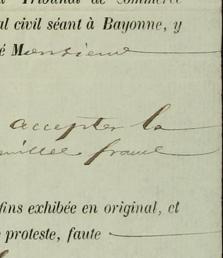 Tribunal de Commerce
al civil séant à Bayonne, y
é Monsieur
accepter la
mille francs
fins exhibée en original, et
proteste, faute